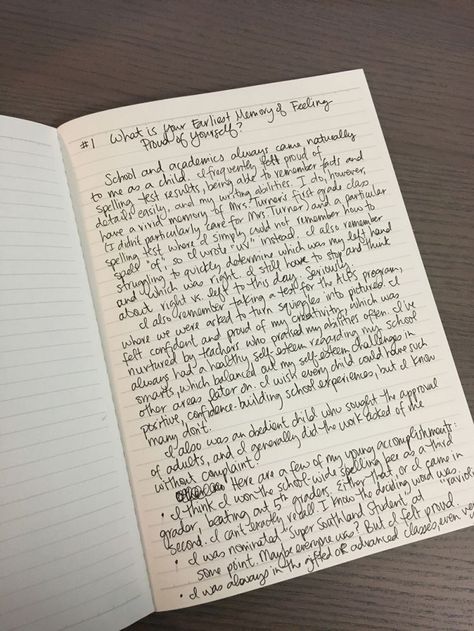 #1 What is Your Earliest Memory of Feeling
Proud of Yourself?
School and academics always came naturally
to me as a child. I frequently felt proud of
spelling test results, being able to remember facts and
details easily, and my writing abilities. I do, however,
have a vivid memory of Mrs. Turner's first grade class
(I didn't particularly care for Mrs. Turner) and a particular
spelling test where I simply could not remember how to
spell "of" so I wrote "uv" instead. I also remember
struggling to quickly determine which was my left hand
and which was right. I still have to stop and think
about right vs. left to this day. Seriously.
I also remember taking a test for the ALPS program,
where we were asked to turn squiggles into pictures. I
felt confident and proud of my creativity, which was
nurtured by teachers who praised my abilities often. I've
always had a healthy self-esteem regarding my school
smarts, which balanced out my self-esteem challenges in
other areas later on. I wish every child could have such
positive, confidence-building school experiences, but I know
many don't.
I also was an obedient child who sought the approval
of adults, and I generally did the work asked of me
without complaint.
Here are a few of my young accomplishments:
• I think I won the school-wide spelling bee as a third
grader, beating out 5th graders. Either that, or I came in
second. I can't exactly recall. I know the deciding word was
"ravioli
• I was nominated Super Southland Student, at
some point. Maybe everyone was? But I felt proud
• I was always in the gifted OR advanced classes, even